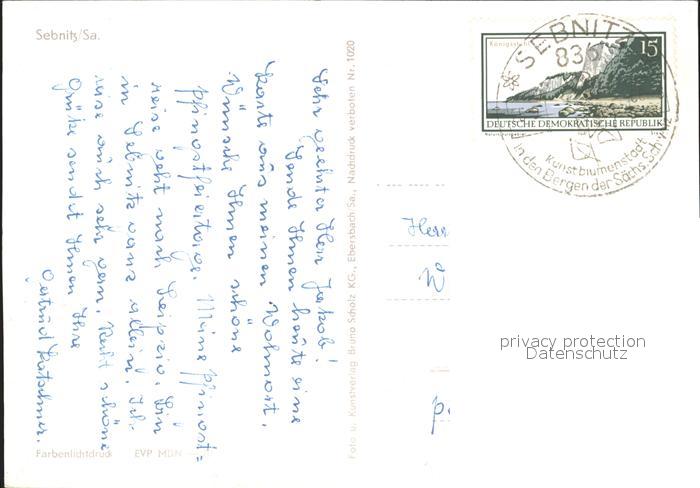 Sebnitz/Sa.
Sehr geehrter Herr Jakob!
Sende Ihnen heute eine
Karte aus meinem Wohnort.
Wünsche Ihnen schöne
Pfingstfeiertage. Meine Pfingst=
reise geht nach Leipzig. Bin
in Sebnitz ganz allein. Ich
reise auch sehr gern. Recht schöne
Grüße sendet Ihnen Ihre
Gertrud
Farbenlichtdruck EVP MDN
Foto u. Kunstverlag Bruno Scholz KG., Ebersbach Sa., Nachdruck verboten Nr. 1020
Königsstuhl
15
DEUTSCHE DEMOKRATISCHE REPUBLIK
SEBNITZ
836
Kunstblumenstadt
in den Bergen der Sächs. Schweiz
Herr
W
privacy protection
Datenschutz